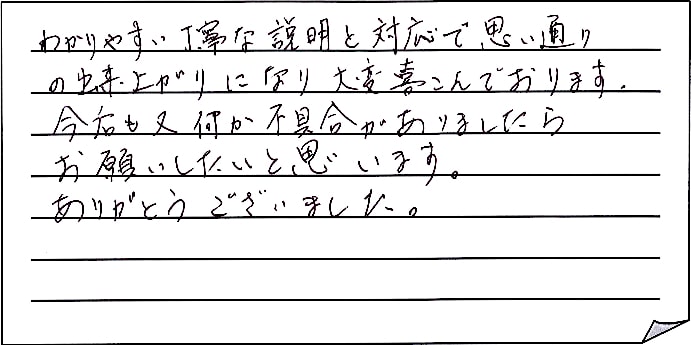 わかりやすい丁寧な説明と対応で思い通り
の出来上がりになり大変喜こんでおります.
今后も又何か不具合がありましたら
お願いしたいと思います。
ありがとうございました。